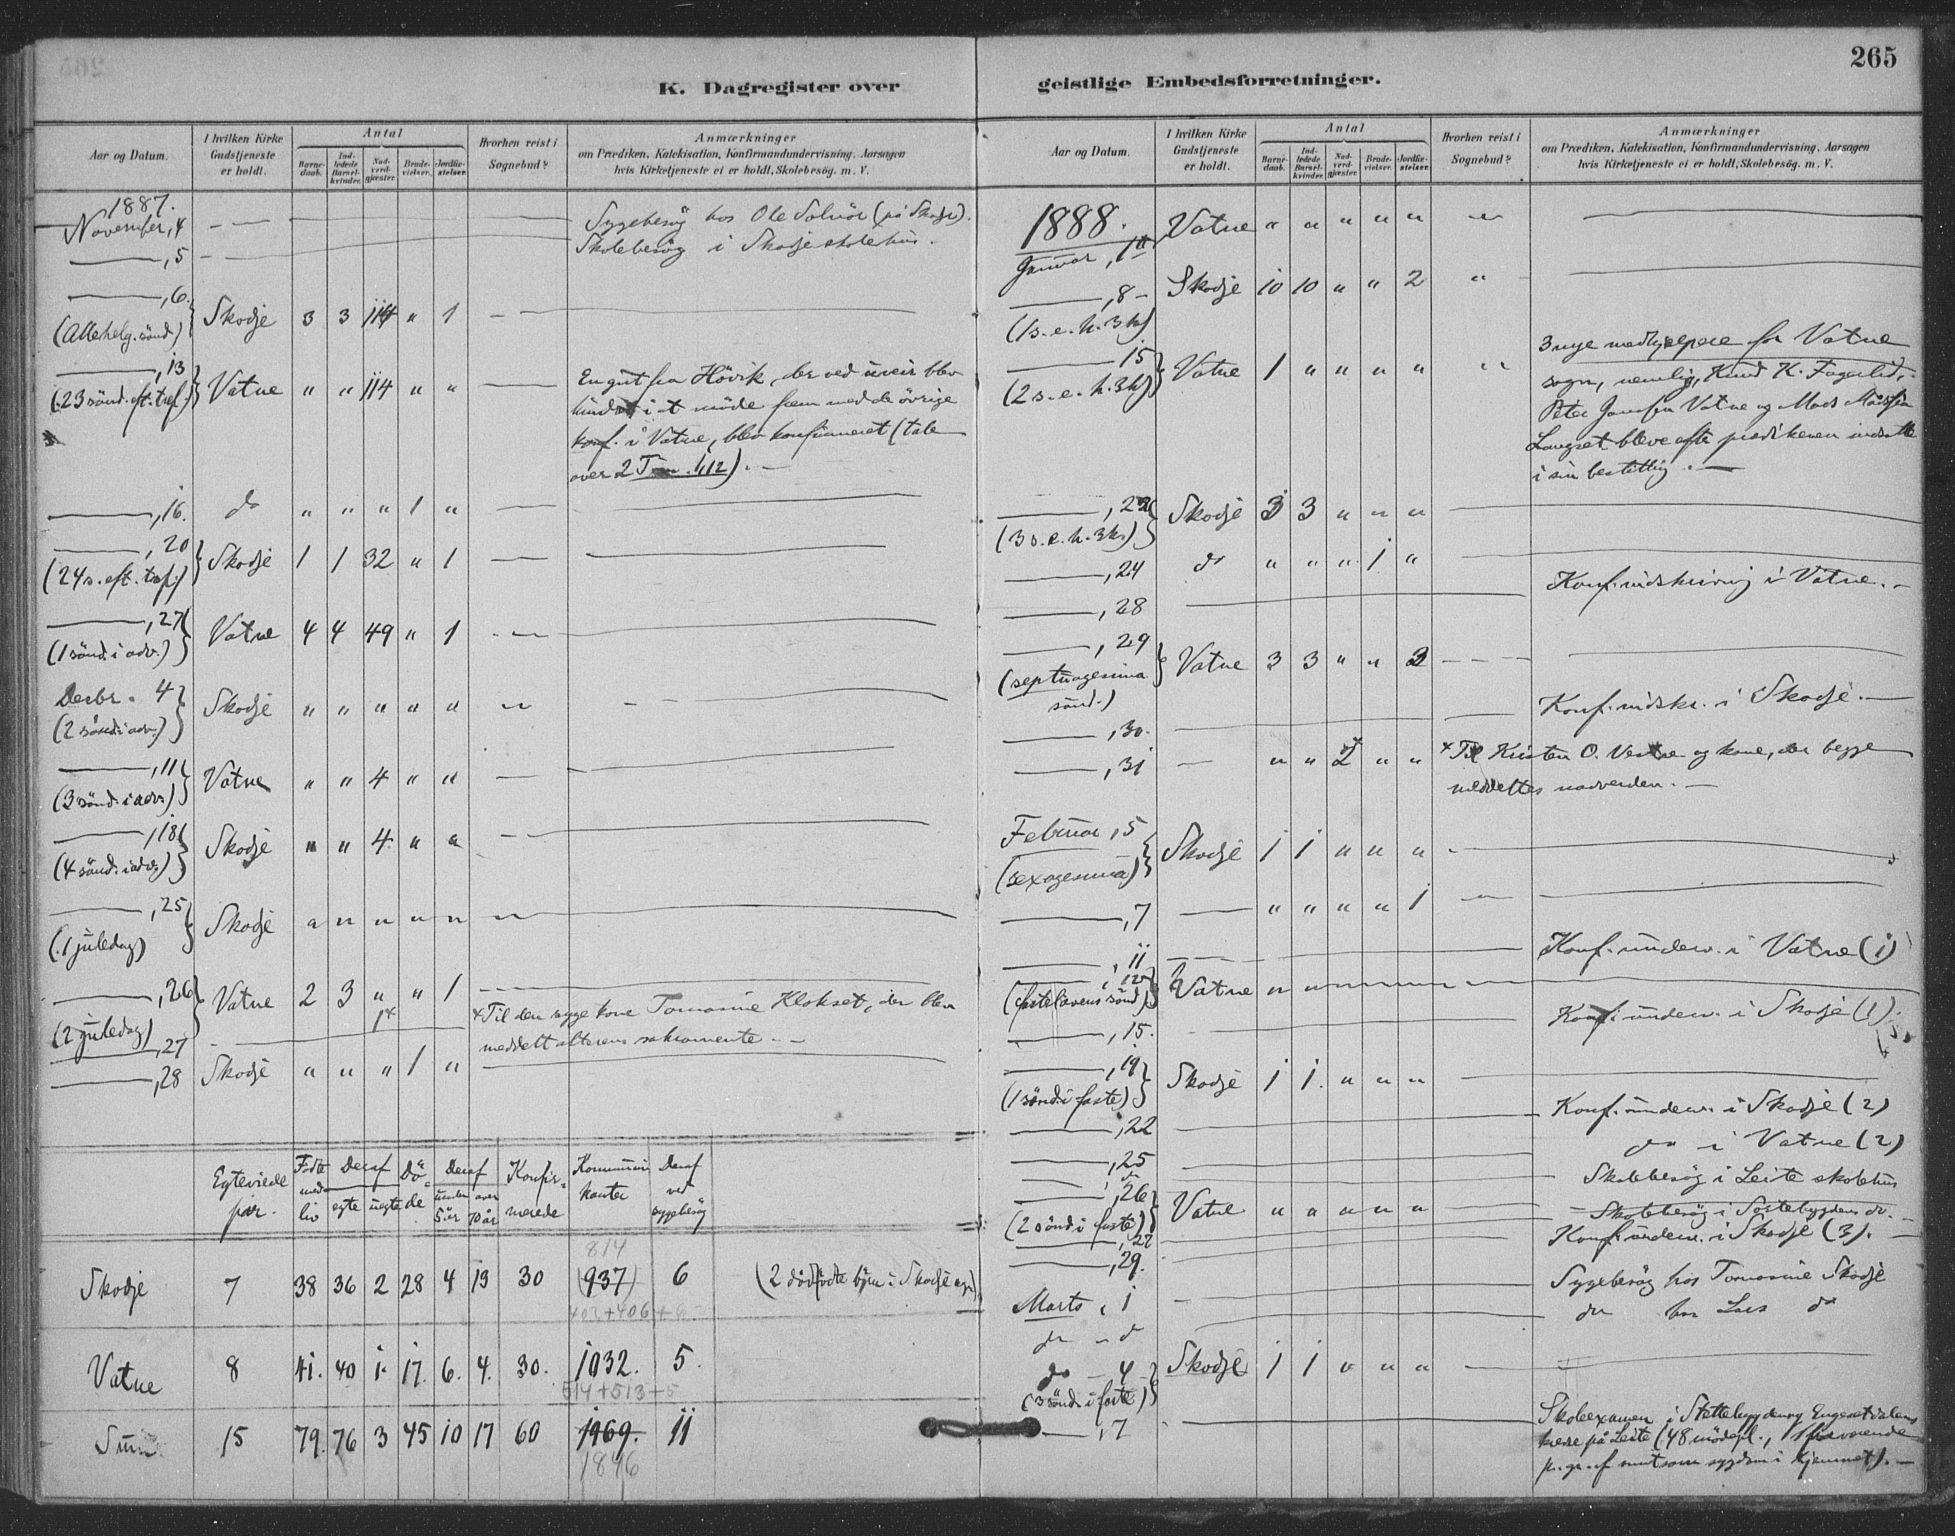 265
K. Dagregister over geistlige Embedsforretninger.
Aar og Datum.
I hvilken Kirke Gudstjeneste er holdt.
Antal
Barne-daab.
Ind-ledede Barsel-kvinder.
Nad-verd-gjæster.
Brude-vielser.
Jordfæ-stelser.
Hvorhen reist i Sognebud?
Anmærkninger
om Prædiken, Katekisation, Konfirmandundervisning, Aarsagen
hvis Kirketjeneste ei er holdt, Skolebesøg. m. V.
1887.
November, 4 Sygebesög hos Ole Solnör (på Skodje).
,5 Skolebesög i Skodje skolehus.
,6. (Allehelg. sönd) Skodje 3 3 114 " 1
,13 (23 sönd. ft. tref.) Vatne " " 114 " "
En gut fra Hövik, der ved uveir blev
hindret i at möde frem med de övrige
konf. i Vatne, blev konfirmeret (tale
over 2 Tim. 1,12). —
,16. do " " " 1 "
,20 (24 s. eft. tref.) Skodje 1 1 32 " 1
,27 (1 sönd. i adv.) Vatne 4 4 49 " 1
Decbr. 4 (2 sönd. i adv.) Skodje " " " " "
,11 (3 sönd. i adv.) Vatne " " 4 " "
,18 (4 sönd. i adv.) Skodje " " 4 " "
,25 (1 juledag) Skodje " " " " "
,26 (2 juledag) Vatne 2 3 " " 1
,27 1x x Til den syge kone Tomasine Klokset, der blev
meddelt alterens sakramente. —
,28 Skodje " " " 1 "
Egteviede par.
Födte med liv
Deraf egte uegte
Döde
Deraf under 5 år over 70 år
Konfirmerede
Kommunikanter
Deraf ved sygebesög
814
Skodje 7 38 36 2 28 4 13 30 (937) 6 (2 dödfödte börn i Skodje sogn)
402+406+6
Vatne 8 41. 40 1. 17. 6. 4. 30. 1032. 5.
514+513+5
Sum 15 79. 76 3 45 10 17 60 1969. 11
1846
Aar og Datum.
I hvilken Kirke Gudstjeneste er holdt.
Antal
Barne-daab.
Ind-ledede Barsel-kvinder.
Nad-verd-gjæster.
Brude-vielser.
Jordfæ-stelser.
Hvorhen reist i Sognebud?
Anmærkninger
om Prædiken, Katekisation, Konfirmandundervisning, Aarsagen
hvis Kirketjeneste ei er holdt, Skolebesøg. m. V.
1888.
Januar, 1ste Vatne " " " " "
,8 (1 s. e. h. 3 k) Skodje 10 10 " " 2 "
,15 (2 s. e. h. 3 k) Vatne 1 " " " " "
3 nye medhjelpere for Vatne
sogn, nemlig, Knud K. Fagerlid,
Peter Vatne og Mads
Langset bleve efter prædikenen indsatte
i sin bestilling. —
,22 (3 s. e. h. 3 k) Skodje 3 3 " " "
,24 do " " " 1 "
,28 Konf. indskrivning i Vatne. —
,29 (septuagesima sönd.) Vatne 3 3 " " 3
,30. Konf. indskr. i Skodje. —
,31 " " 2 " " x Til Kirsten O. og kone, der begge
meddeltes nadverden. —
Februar, 5 (sexagesima) Skodje 1 1 " " "
,7 " " " " 1
,11 Konf. underv. i Vatne (1)
,12 (fastelavens sönd) Vatne " " " " "
,15. Konf. underv. i Skodje (1).
,19 (1 sönd. i faste) Skodje 1 1. " " "
,22 Konf. underv. i Skodje (2)
,25 do i Vatne (2)
do Skolebesög i Leite skolehus
,26 (2 sönd i faste) Vatne " " " " "
,27 Skolebesög i do. —
,29. Konf. underv. i Skodje (3). —
Marts, 1 Sygebesög hos Tomasine Skodje
do " d do hos Lars do
do - 4 (3 sönd. i faste) Skodje 1 1 " " "
,7 Skoleexamen i Stettebygden og Engesetdalens
kreds på Leite (48 mödepl., 1 fraværende
p. gr. af smitsom sygdom i hjemmet). —